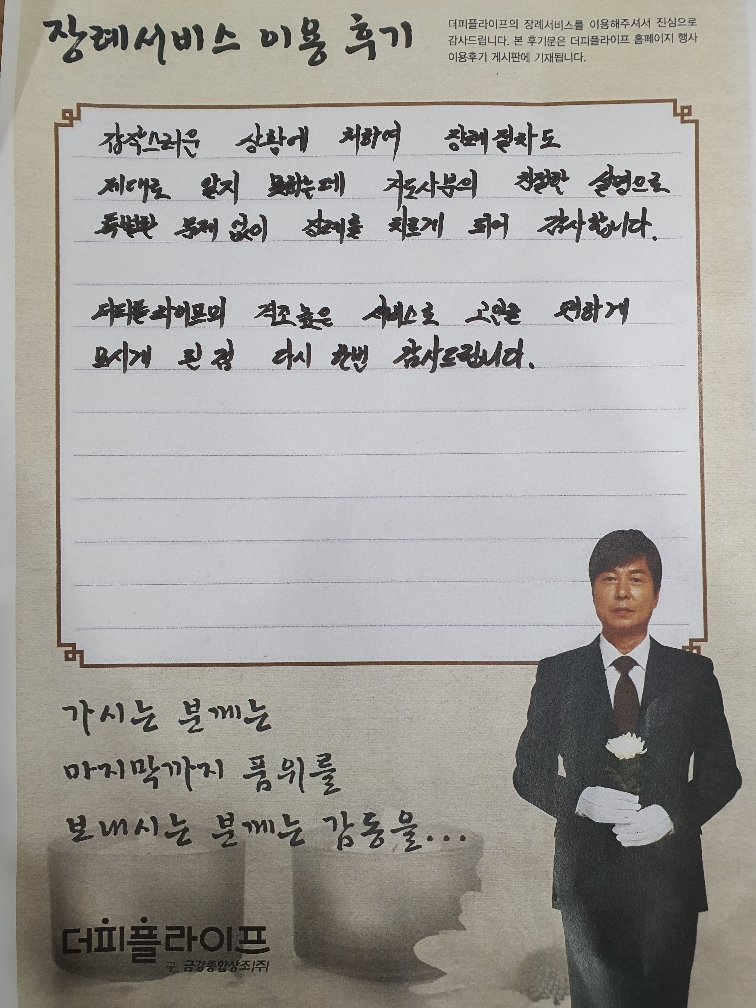 장례서비스 이용 후기
더피플라이프의 장례서비스를 이용해주셔서 진심으로
감사드립니다. 본 후기문은 더피플라이프 홈페이지 행사
이용후기 게시판에 기재됩니다.
갑작스러운 상황에 처하여 장례절차도
제대로 알지 못하는데 지도사분의 친절한 설명으로
특별한 문제 없이 장례를 치르게 되어 감사합니다.
더피플라이프의 격조높은 서비스로 고인을 편하게
모시게 된 점 다시 한번 감사드립니다.
가시는 분께는
마지막까지 품위를
보내시는 분께는 감동을...
더피플라이프
구. 금강종합상조(주)